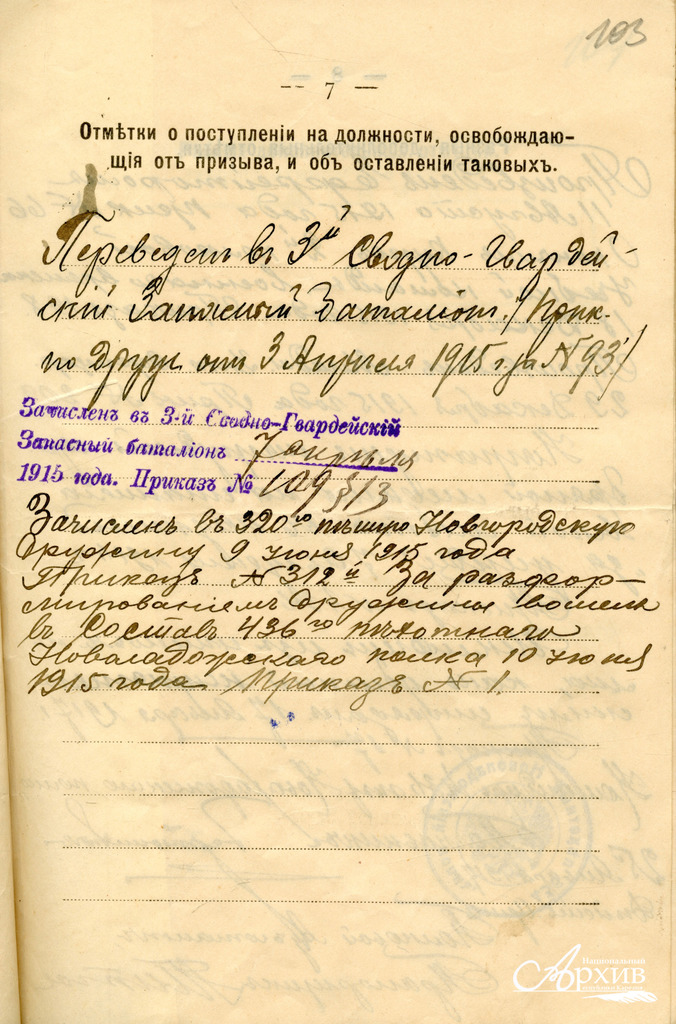 103
— 7 —
Отмѣтки о поступленіи на должности, освобождаю-
щія отъ призыва, и объ оставленіи таковыхъ.
Переведенъ въ 3й Сводно-Гвардей-
скій Запасный Баталіонъ (Прик.
по друж. отъ 3 Апреля 1915 г. за № 93)
Зачисленъ въ 3-й Сводно-Гвардейскій
Запасный баталіонъ 7 апреля
1915 года. Приказъ № 109 § 13
Зачисленъ въ 320ю пѣшую Новгородскую
дружину 9 июня 1915 года
Приказъ № 312й За расфор-
мированіемъ дружины вошелъ
въ Составъ 436го пѣхотнаго
Новоладожскаго полка 10 июня
1915 года Приказъ № 1.
Национальный
Архив